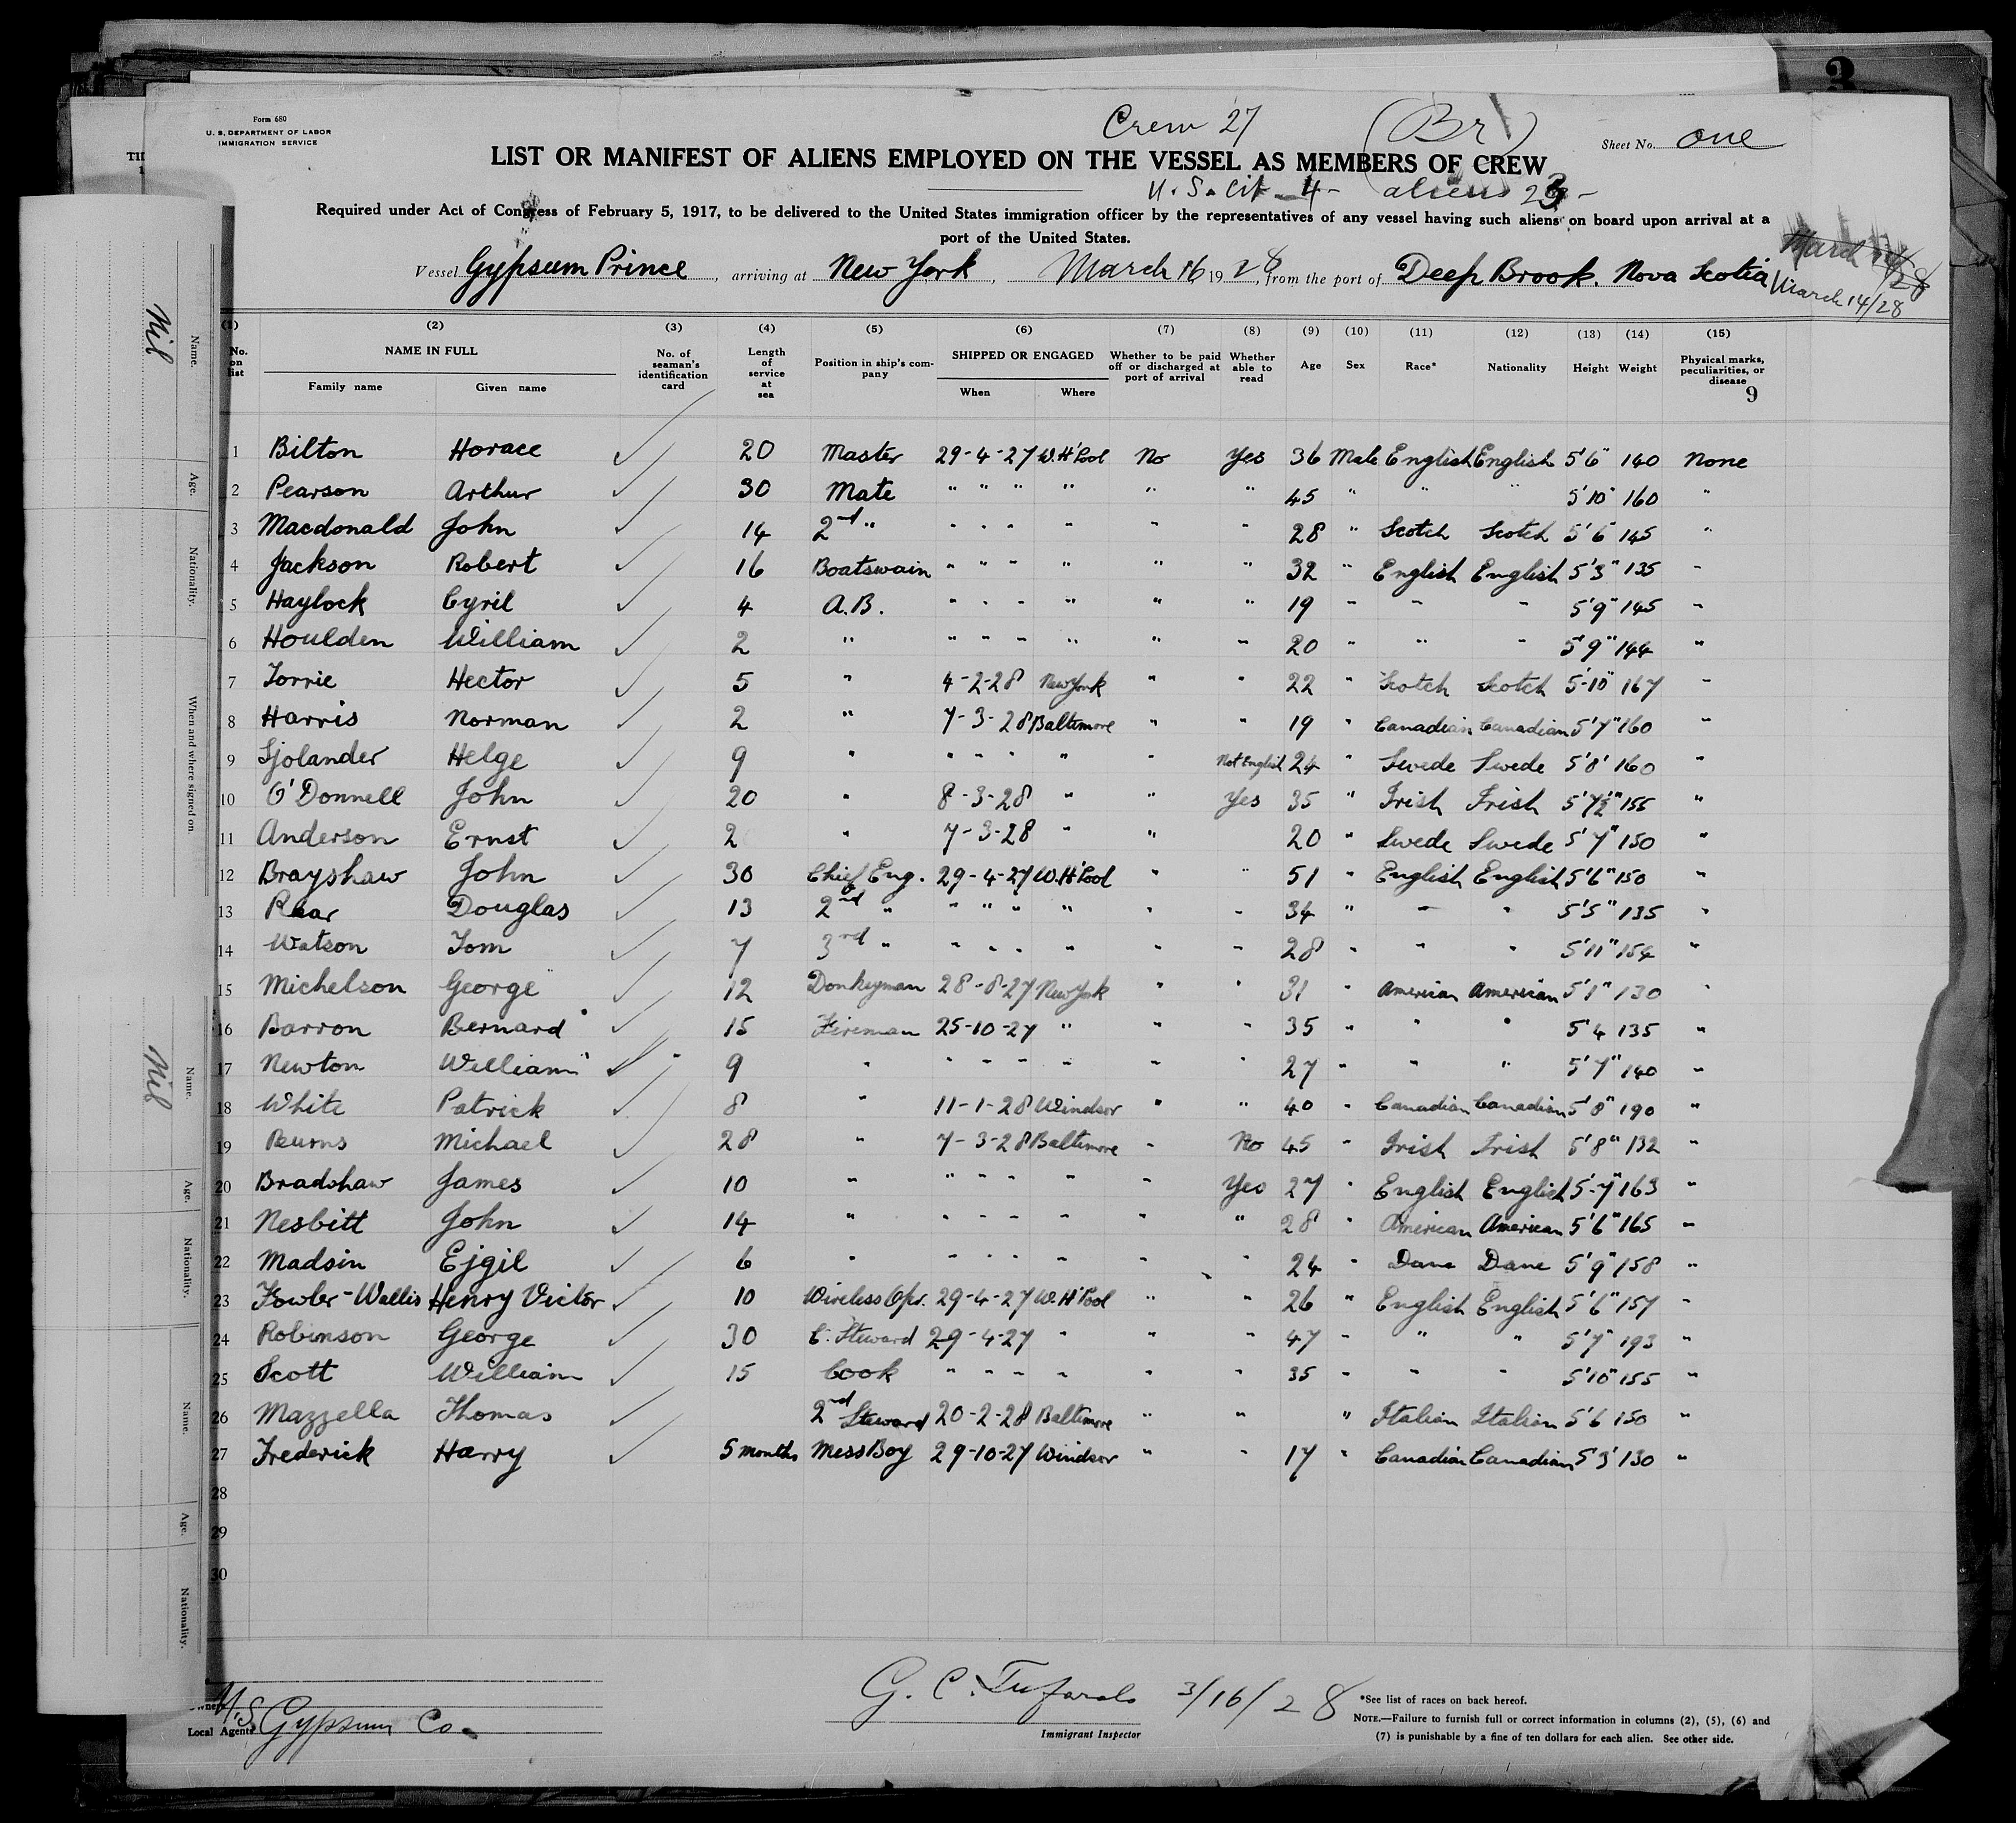 3
Form 680
U. S. DEPARTMENT OF LABOR
IMMIGRATION SERVICE
Crew 27 (Br)
Sheet No. one
LIST OR MANIFEST OF ALIENS EMPLOYED ON THE VESSEL AS MEMBERS OF CREW
U.S. Cit - 4 - aliens 23 -
Required under Act of Congress of February 5, 1917, to be delivered to the United States immigration officer by the representatives of any vessel having such aliens on board upon arrival at a
port of the United States.
Vessel Gypsum Prince, arriving at New York, March 16 1928, from the port of Deep Brook. Nova Scotia
March 14/28
(1) (2) (3) (4) (5) (6) (7) (8) (9) (10) (11) (12) (13) (14) (15)
No. on list NAME IN FULL Family name Given name No. of seaman's identification card Length of service at sea Position in ship's company SHIPPED OR ENGAGED When Where Whether to be paid off or discharged at port of arrival Whether able to read Age Sex Race* Nationality Height Weight Physical marks, peculiarities, or disease
9
1 Bilton Horace ✓ 20 Master 29-4-27 W.H'Pool No Yes 36 Male English English 5'6" 140 None
2 Pearson Arthur ✓ 30 Mate " " " " " " 45 " " " 5'10" 160 "
3 Macdonald John ✓ 14 2nd " " " " " " " 28 " Scotch Scotch 5'6 145 "
4 Jackson Robert ✓ 16 Boatswain " " " " " " 32 " English English 5'3" 135 "
5 Haylock Cyril ✓ 4 A.B. " " " " " " 19 " " " 5'9" 145 "
6 Houlden William ✓ 2 " " " " " " " 20 " " " 5'9" 144 "
7 Torrie Hector ✓ 5 " 4-2-28 New York " " 22 " Scotch Scotch 5-10" 167 "
8 Harris Norman ✓ 2 " 7-3-28 Baltimore " " 19 " Canadian Canadian 5'7" 160 "
9 Sjolander Helge ✓ 9 " " " " " " Not English 24 " Swede Swede 5'8' 160 "
10 O'Donnell John ✓ 20 " 8-3-28 " " Yes 35 " Irish Irish 5'7½" 155 "
11 Anderson Ernst ✓ 2 " 7-3-28 " " 20 " Swede Swede 5'7" 150 "
12 Brayshaw John ✓ 30 Chief Eng. 29-4-27 W.H'Pool " " 51 " English English 5'6" 150 "
13 Douglas ✓ 13 2nd " " " " " " " 34 " " " 5'5" 135 "
14 Watson Tom ✓ 7 3rd " " " " " " " 28 " " " 5'11" 154 "
15 Michelson George ✓ 12 Donkeyman 28-8-27 New York " " 31 " American American 5'1" 130 "
16 Barron Bernard ✓ 15 Fireman 25-10-27 " " " 35 " " " 5'4 135 "
17 Newton William ✓ " 9 " " " " " " " 27 " " " 5'7" 140 "
18 White Patrick ✓ 8 " 11-1-28 Windsor " " 40 " Canadian Canadian 5'8" 190 "
19 Burns Michael ✓ 28 " 7-3-28 Baltimore " No 45 " Irish Irish 5'8" 132 "
20 Bradshaw James ✓ 10 " " " " " " Yes 27 " English English 5-7" 163 "
21 Nesbitt John ✓ 14 " " " " " " " 28 " American American 5'6" 165 "
22 Madsin Ejgil ✓ 6 " " " " " " " 24 " Dane Dane 5'9" 158 "
23 Fowler-Wallis Henry Victor ✓ 10 Wireless Opr. 29-4-27 W.H'Pool " " 26 " English English 5'6" 157 "
24 Robinson George ✓ 30 C. Steward 29-4-27 " " " 47 " " " 5'7" 193 "
25 Scott William ✓ 15 Cook " " " " " " 35 " " " 5'10" 155 "
26 Mazzella Thomas ✓ 2nd Steward 20-2-28 Baltimore " " " Italian Italian 5'6 150 "
27 Frederick Harry ✓ 5 months Mess Boy 29-10-27 Windsor " " 17 " Canadian Canadian 5'3' 130 "
28
29
30
Local Agents U.S. Gypsum Co.
G. C. 3/16/28
Immigrant Inspector
*See list of races on back hereof.
NOTE.—Failure to furnish full or correct information in columns (2), (5), (6) and
(7) is punishable by a fine of ten dollars for each alien. See other side.
Name. Nil
Age.
Nationality.
When and where signed on.
Name. Nil
Age.
Nationality.
Name.
Age.
Nationality.